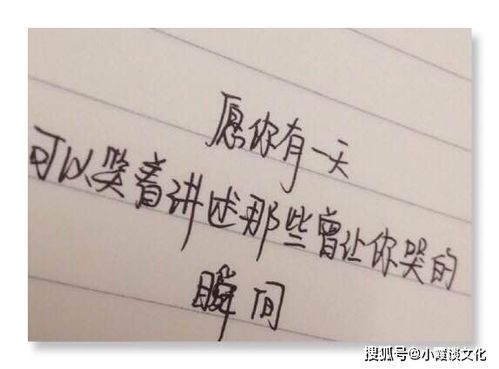 愿你有一天
可以笑着讲述那些曾让你哭的
瞬间
搜狐号@小霞谈文化